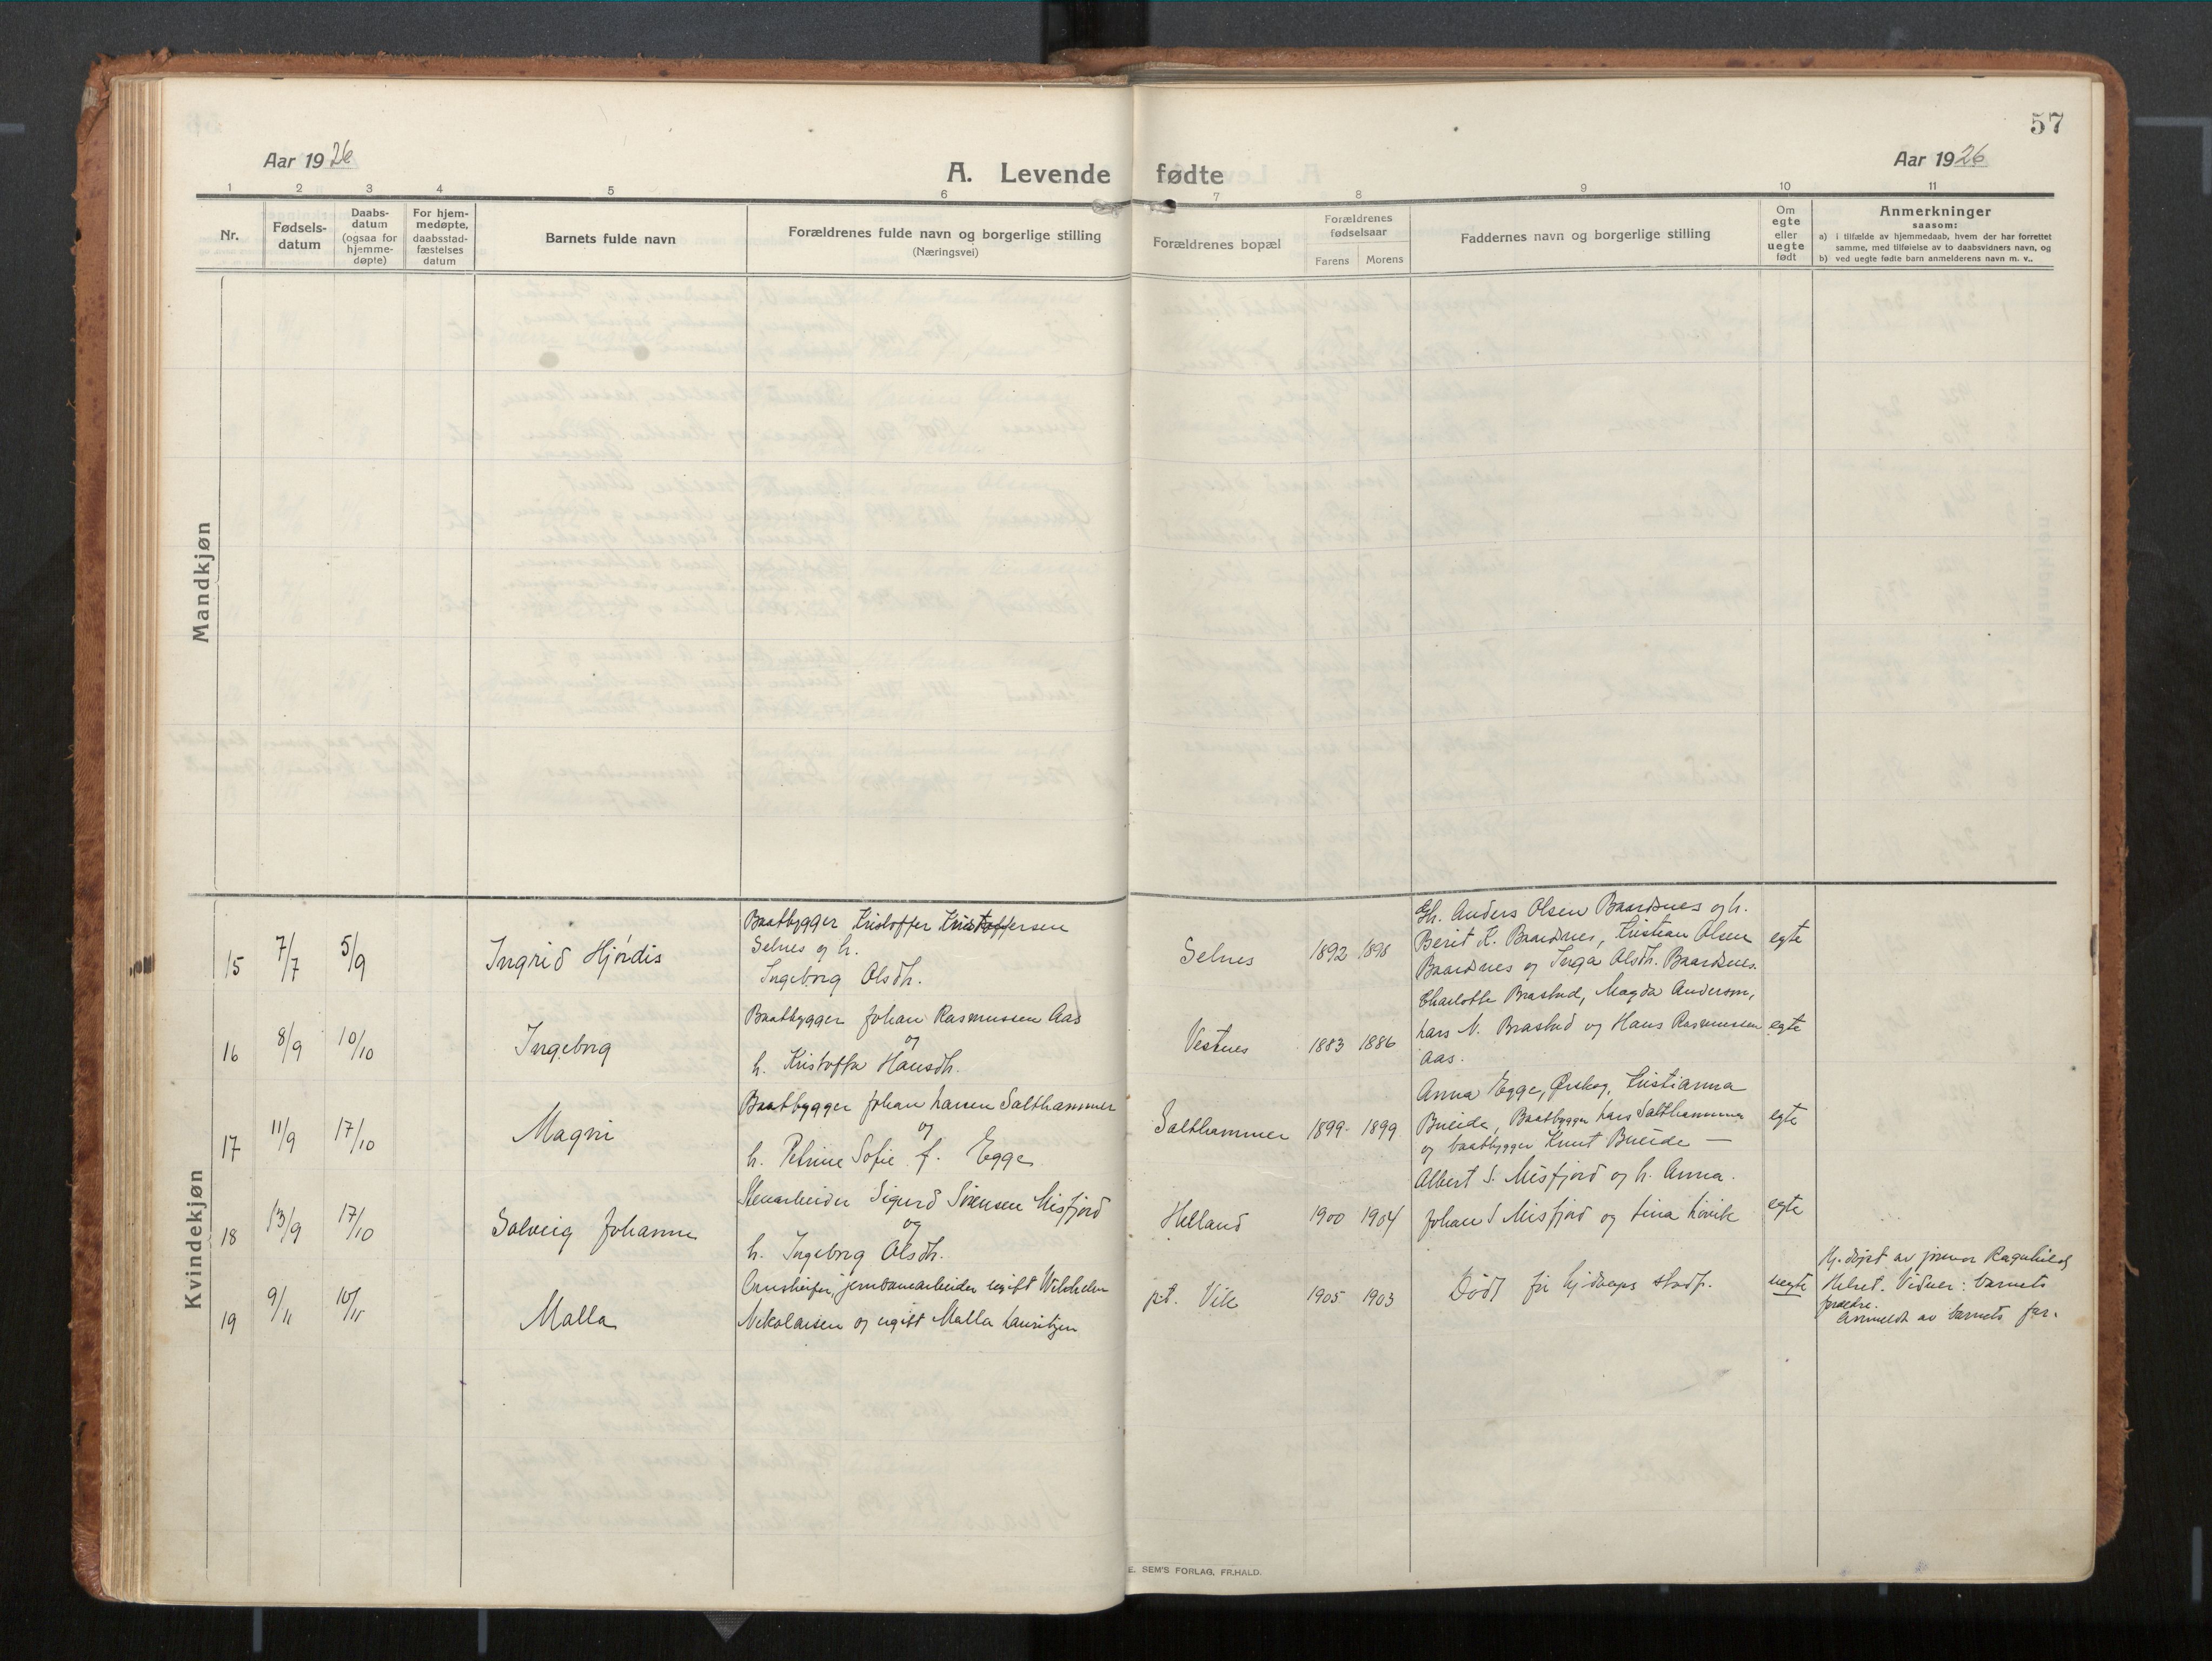 57
Aar 1926
Aar 1926
A. Levende fødte
1 2 3 4 5 6 7 8 9 10 11
Nr.
Fødsels-
datum
Daabs-
datum
(ogsaa for
hjemme-
døpte)
For hjem-
medøpte,
daabsstad-
fæstelses
datum
Barnets fulde navn
Forældrenes fulde navn og borgerlige stilling
(Næringsvei)
Forældrenes bopæl
Forældrenes
fødselsaar
Farens Morens
Faddernes navn og borgerlige stilling
Om
egte
eller
uegte
født
Anmerkninger
saasom:
a) i tilfælde av hjemmedaab, hvem der har forrettet
samme, med tilføielse av to daabsvidners navn, og
b) ved uegte fødte barn anmelderens navn m. v..
Mandkjøn
Kvindekjøn
15 7/7 5/9 Ingrid Hjördis
Baatbygger Kristoffer Kristoffersen
Selnes og h.
Ingeborg Olsdh.
Selnes 1892 1898
Gh. Anders Olsen Baardsnes og h.
Berit K. Baardsnes, Kristian Olsen
Baardsnes og Inga Olsdh. Baardsnes.
egte
16 8/9 10/10 Ingeborg
Baatbygger Johan Rasmussen Aas
og
h. Kristoffa Hansdh.
Vestnes 1883 1886
Charlotte Brastad, Magda Anderson,
Lars N. Brastad og Hans Rasmussen
Aas.
egte
17 11/9 17/10 Magni
Baatbygger Johan Larsen Salthammer
og
h. Petrine Sofie f. Egge
Salthammer 1899 1899
Anna Egge, Ørskog, Kristianna
Bueide, Baatbygger Lars Salthammer
og baatbygger Knut Bueide —
egte
18 13/9 17/10 Solveig Johanne
Stenarbeider Sigurd Sörensen Misfjord
og
h. Ingeborg Olsdh.
Helland 1900 1904
Albert S. Misfjord og h. Anna.
Johan S Misfjord og Lina Lövik
egte
19 9/11 10/11 Malla
jerndamarbeider ugift Wilhelm
Nikolaisen og ugift Malla Lauritzen
pt. Vik 1905 1903
Död för hjdaaps stadf.
uegte
Hj. döpt av jormor Ragnhild
Helset. Vidner: barnets
foreldre.
Anmeldt av barnets far.
E. SEM'S FORLAG, FR.HALD.